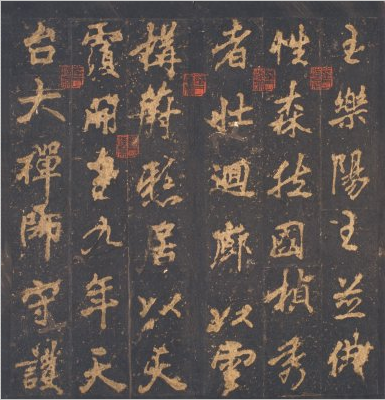 王樂陽王並佛
性森國楨秀
者壯迴廊以雲
構蔚懸居以
開皇九年天
台大禪師守護